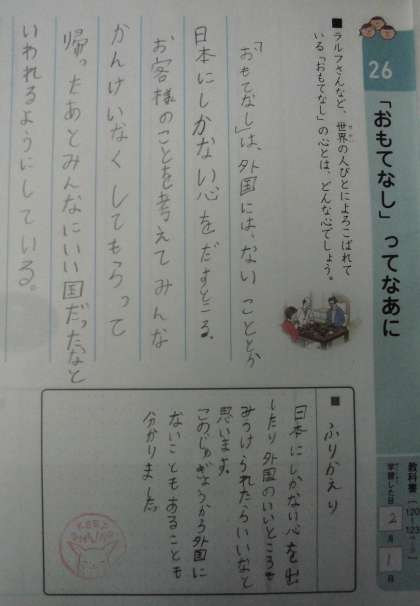 26
「おもてなし」ってなあに
教科書(120〜123ページ)
学習した日 2月1日
■ラルフさんなど、世界の人びとによろこばれて
いる「おもてなし」の心とは、どんな心でしょう。
「おもてなし」は、外国には、ないこととか
日本にしかない心をだすところ。
お客様のことを考えてみんな
かんけいなくしてもらって
帰ったあとみんなにいい国だったなと
いわれるようにしている。
■ふりかえり
日本にしかない心を出
したり外国のいいところも
みつけられたらいいなと
思います。
このじゅぎょうから外国に
ないこともあることも
分かりました。
KEEP